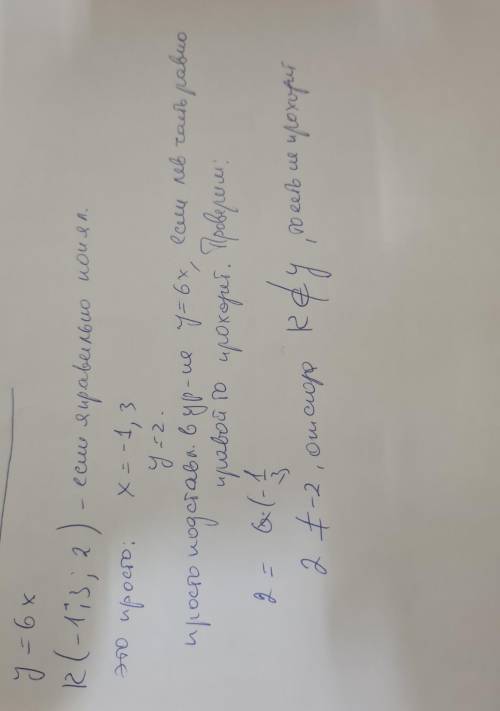 y = 6x
K (-1;3; 2) - если я правильно понял.
это просто: x = -1,3
y = 2.
просто подставл. в ур-ие y = 6x, если лев часть равно
правой то проходит. Проверим:
2 = 6·(-1/3
2 ≠ -2, отсюда K ∉ y, то есть не проходит